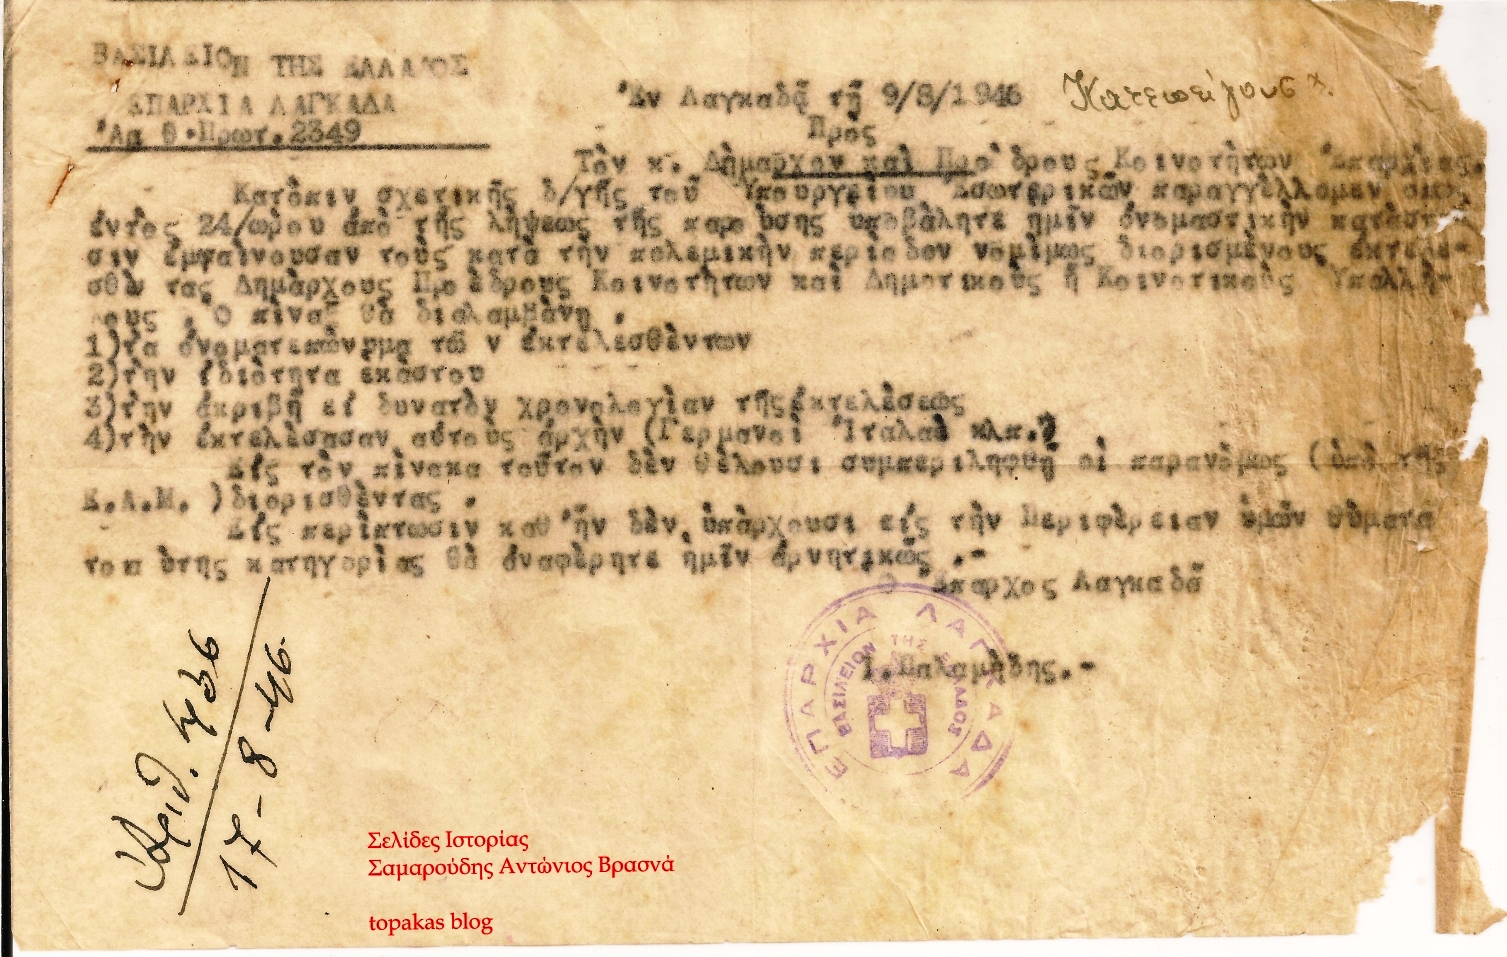 ΒΑΣΙΛΕΙΟΝ ΤΗΣ ΕΛΛΑΔΟΣ
ΕΠΑΡΧΙΑ ΛΑΓΚΑΔΑ
Ἀρ θ.Πρωτ.2349
Ἐν Λαγκαδᾷ τῇ 9/8/1946 Κατεπείγουσ
Πρὸς
Τὸν κ. Δὴμαρχον καὶ Προὲδρους Κοινοτὴτων Ἐπαρχὶας.
Κατὸπιν σχετικῆς δ/γῆς τοῦ Ὑπουργεὶου Ἐσωτερικῶν παραγγὲλλομεν
ἐντὸς 24/ὡρου ἀπὸ τῆς λὴψεως τῆς παρούσης ὑποβὰλητε ἡμῖν ὀνομαστικὴν
σιν ἐμφαὶνουσαν τοὺς κατὰ τὴν πολεμικὴν περὶοδον νομὶμως διορισμὲνους ἐκτελε-
σθὲν τας Δημὰρχους Προὲδρους Κοινοτὴτων καὶ Δημοτικοὺς ἢ Κοινοτικοὺς Ὑπαλλὴ-
ρους . Ὁ πὶναξ θὰ διαλαμβὰνη .
1)τὰ ὀνοματεπώνυμα τῶ ν ἐκτελεσθὲντων
2)τὴν ἰδιὸτητα ἑκὰστου
3)τὴν ἀκριβῆ εἰ δυνατὸν χρονολογὶαν τῆς ἐκτελὲσεως
4)τὴν ἐκτελὲσασαν αὐτοὺς ἀρχὴν (Γερμανοὶ Ἰταλοὶ κλπ.)
Εἰς τὸν πὶνακα τοῦτον δὲν θὲλουσι συμπεριληφθῆ οἱ παρανὸμως (ὑπὸ τῆς
Ε.Α.Μ. )διορισθὲντας .
Εἰς περὶπτωσιν καθ'ἣν δὲν ὑπὰρχουσι εἰς τὴν Περιφὲρειαν ὑμῶν θὺματα
τοιαὺτης κατηγορὶας θὰ ἀναφὲρητε ἡμῖν ἀρνητικῶς .-
Ὁ Ἔπαρχος Λαγκαδᾶ
Ι.Παλαμὴδης.-
ΕΠΑΡΧΙΑ ΛΑΓΚΑΔΑ
ΒΑΣΙΛΕΙΟΝ ΤΗΣ ΕΛΛΑΔΟΣ
Ἀριθ.
17-8-46
Σελίδες Ιστορίας
Σαμαρούδης Αντώνιος Βρασνά
topakas blog